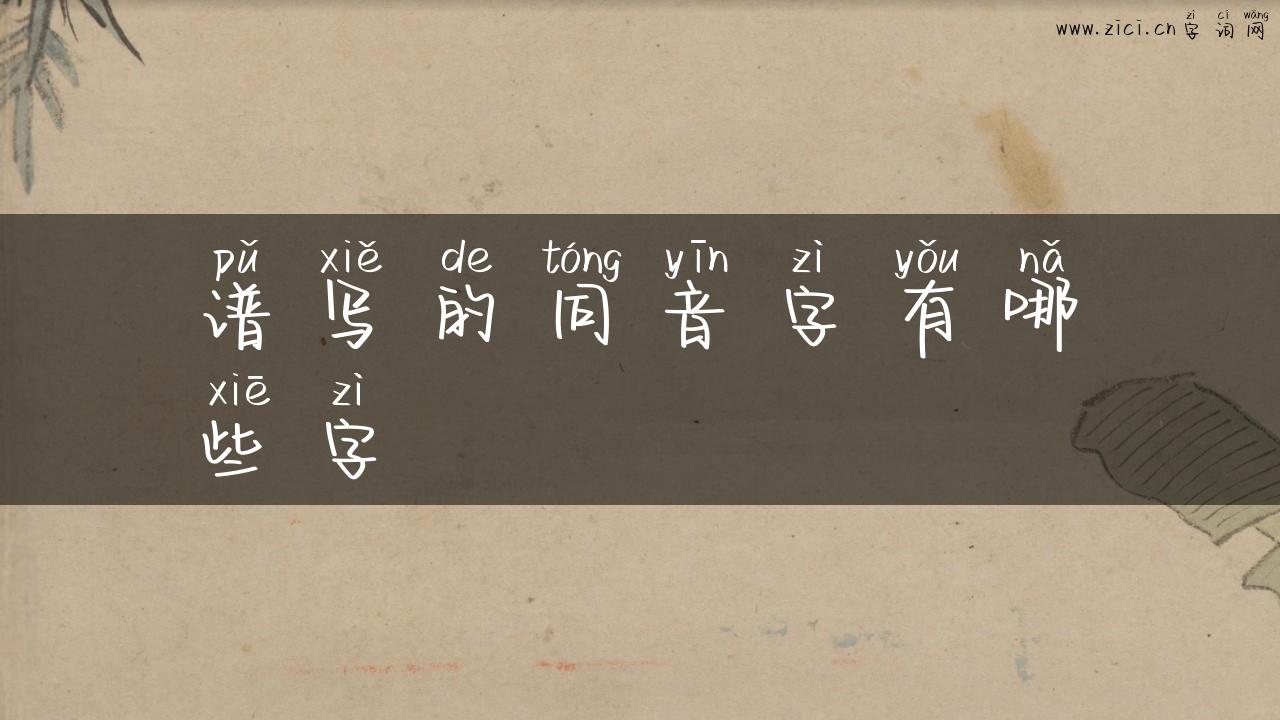 zì cí wǎng
www.zici.cn 字 词 网
pǔ xiě de tóng yīn zì yǒu nǎ
谱 写 的 同 音 字 有 哪
xiē zì
些 字